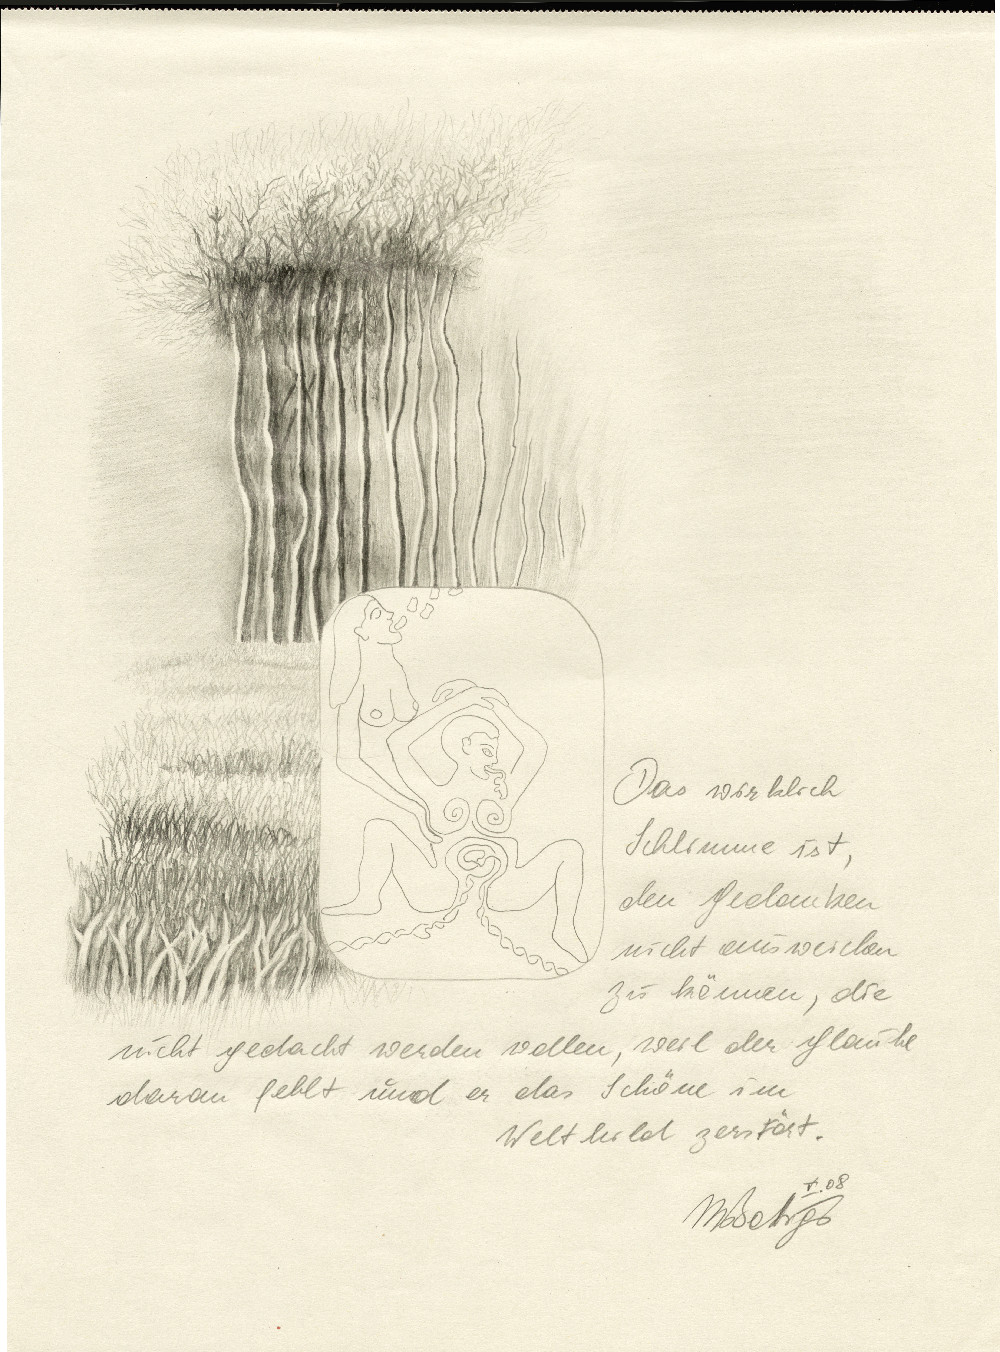 Das wirklich
Schlimme ist,
den Gedanken
nicht ausweichen
zu können, die
nicht gedacht werden wollen, weil der Glaube
daran fehlt und er das Schöne im
Weltbild zerstört.
V.08